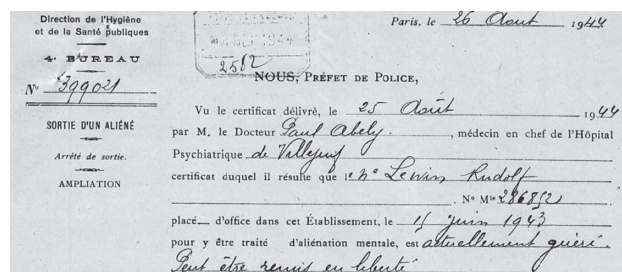 Direction de l'Hygiène
et de la Santé publiques
4e BUREAU
No 399021
SORTIE D'UN ALIÉNÉ
Arrêté de sortie.
AMPLIATION
2512
Paris, le 26 Aout 1944
NOUS, PRÉFET DE POLICE,
Vu le certificat délivré, le 25 Août 1944
par M. le Docteur Paul Abely, médecin en chef de l'Hôpital
Psychiatrique de Villejuif
certificat duquel il résulte que le né Lewin Rudolf
No Mle 286852
placé d'office dans cet Établissement, le 15 juin 1943
pour y être traité d'aliénation mentale, est actuellement guéri.
Peut être remis en liberté